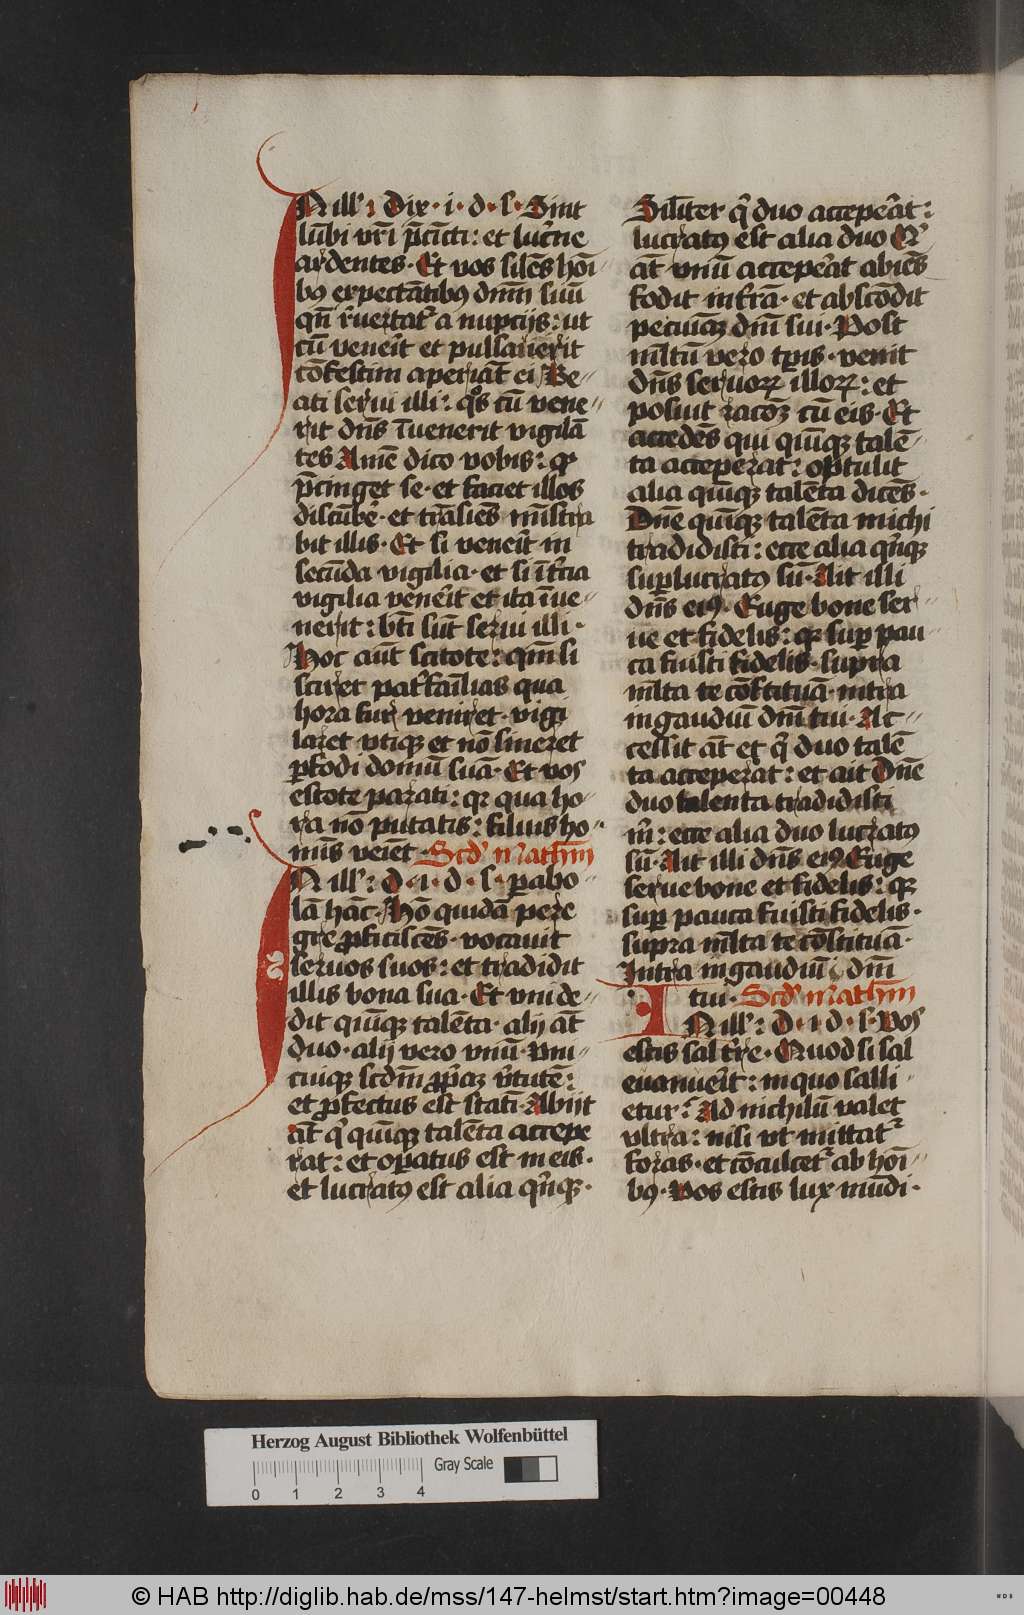 IN ill': Dix · i · d · s · Sint
lūbi vr̄i p̄cīcti: et luc̄ne
ardentes · Et vos silēs hoī-
bꝰ expectātibꝰ dnm̄ suū
qn̄ r̄uertat᷑ a nupcijs: ut
cū vener̄it et pulsauerit
cōfestim aperiāt ei Be-
ati serui illi: qͦs cū vene-
rit dn̄s īuenerit vigilā
tes Amē dico vobis: ꝙ
p̄cinget se · et faciet illos
discūbe᷑ · et trāsiēs mīstra
bit illis · Et si vener̄it in
secūda vigilia · et si ī t᷑cia
vigilia vene᷑it et ita īue-
nerit: bt̄i sūt serui illi ·
Hoc aūt scitote: qm̄ si
sciret pat᷑faīlias qua
hora fur veniret · vigi
laret vtiqꝫ et nō sineret
ꝑfodi domū suā · Et vos
estote parati: qꝛ qua ho-
ra nō putatis: filius ho-
mīs veīet · Scd' mathm̄
IN ill': d · i · d · s · ꝑabo-
lā hāc · Hō quidā pere
gre ꝓficiscēs · vocauit
seruos suos: et tradidit
illis bona sua · Et vni de-
dit quīqꝫ talēta · alij āt
duo · alij vero vnū · vni-
cuiqꝫ scdm̄ ꝓp̄aꝫ v᷑tutē:
et ꝓfectus est statī · Abijt
āt qͥ quīqꝫ talēta accepe
rat: et oꝑatus est in eis ·
et lucratꝰ est alia qͥnqꝫ ·
Silīter qͥ duo accepe᷑at:
lucratꝰ est alia duo Qͥ
āt vnū accepe᷑at abiēs
fodit in t᷑rā · et abscōdit
pecuniaꝫ dn̄i sui · Post
ml̄tū vero tꝑis · venit
dn̄s seruoꝝ illoꝝ: et
posuit racōꝫ cū eis · Et
accedēs qui quīqꝫ talē-
ta acceperat: optulit
alia quīqꝫ talēta dicēs ·
Dn̄e quīqꝫ talēta michi
tradidisti: ecce alia qͥnqꝫ
suꝑlucratꝰ sū · Ait illi
dn̄s eiꝰ · Euge bone ser-
ue et fidelis: qꝛ suꝑ pau-
ca fuisti fidelis · supra
ml̄ta te cōstituā · intra
in gaudiū dn̄i tui · Ac-
cessit āt et qͥ duo talē
ta acceperat: et ait Dn̄e
duo talenta tradidisti
m̄: ecce alia duo lucratꝰ
sū · Ait illi dn̄s eiꝰ Euge
serue bone et fidelis: qꝛ
suꝑ pauca fuisti fidelis ·
supra ml̄ta te cōstituā ·
Intra in gaudiū dn̄i
tui · Scd' mathm̄
IN ill': d · i · d · s · Vos
estis sal t᷑re · Quod si sal
euanue᷑it: in quo salli-
etur? Ad nichilū valet
vltra: nisi vt mittat᷑
foras · et cōculcet᷑ ab hoī-
bꝰ · Vos estis lux mūdi ·
Herzog August Bibliothek Wolfenbüttel
Gray Scale
0 1 2 3 4
© HAB http://diglib.hab.de/mss/147-helmst/start.htm?image=00448